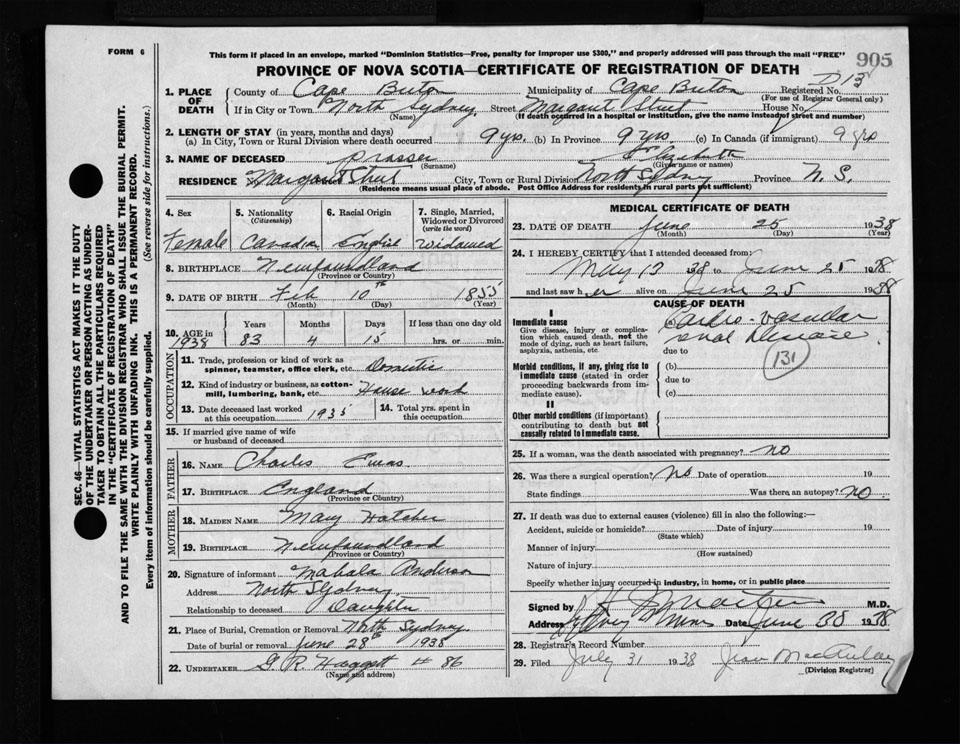 FORM 6
This form if placed in an envelope, marked "Dominion Statistics—Free, penalty for improper use $300," and properly addressed will pass through the mail "FREE"
905
PROVINCE OF NOVA SCOTIA—CERTIFICATE OF REGISTRATION OF DEATH
1. PLACE OF DEATH
County of Cape Breton Municipality of Cape Breton Registered No. D13
(For use of Registrar General only)
If in City or Town North Sydney Street Margaret Street House No.
(Name) (If death occurred in a hospital or institution, give the name instead of street and number)
2. LENGTH OF STAY (in years, months and days)
(a) In City, Town or Rural Division where death occurred 9 yrs. (b) In Province 9 yrs (c) In Canada (if immigrant) 9 yrs
3. NAME OF DECEASED Prosser Elizabeth
(Surname) (Given name or names)
RESIDENCE Margaret Street City, Town or Rural Division North Sydney Province N. S.
(Residence means usual place of abode. Post Office Address for residents in rural parts not sufficient)
4. Sex 5. Nationality (Citizenship) 6. Racial Origin 7. Single, Married, Widowed or Divorced (write the word)
Female Canadian English Widowed
8. BIRTHPLACE Newfoundland
(Province or Country)
9. DATE OF BIRTH Feb 10th 1855
(Month) (Day) (Year)
10. AGE in 1938 Years Months Days If less than one day old
83 4 15 hrs. or min.
OCCUPATION
11. Trade, profession or kind of work as spinner, teamster, office clerk, etc. Domestic
12. Kind of industry or business, as cotton-mill, lumbering, bank, etc. House work
13. Date deceased last worked at this occupation 1935 14. Total yrs. spent in this occupation
15. If married give name of wife or husband of deceased
FATHER
16. NAME Charles
17. BIRTHPLACE England
(Province or Country)
MOTHER
18. MAIDEN NAME Mary Hatcher
19. BIRTHPLACE Newfoundland
(Province or Country)
20. Signature of informant Mahala Anderson
Address North Sydney
Relationship to deceased Daughter
21. Place of Burial, Cremation or Removal North Sydney
Date of burial or removal June 28th 1938
22. UNDERTAKER G. R. Haggett # 86
(Name and address)
MEDICAL CERTIFICATE OF DEATH
23. DATE OF DEATH June 25 1938
(Month) (Day) (Year)
24. I HEREBY CERTIFY that I attended deceased from:
May 13 38 to June 25 1938
and last saw her alive on June 25 1938
CAUSE OF DEATH
I
Immediate cause
Give disease, injury or complication which caused death, not the mode of dying, such as heart failure, asphyxia, asthenia, etc.
(a) Cardio-vascular renal Disease
due to
131
Morbid conditions, if any, giving rise to immediate cause (stated in order proceeding backwards from immediate cause)
(b)
due to
(c)
II
Other morbid conditions (if important) contributing to death but not causally related to immediate cause.
25. If a woman, was the death associated with pregnancy? no
26. Was there a surgical operation? No Date of operation 19
State findings Was there an autopsy? no.
27. If death was due to external causes (violence) fill in also the following:—
Accident, suicide or homicide? Date of injury 19
(State which)
Manner of injury
(How sustained)
Nature of injury
Specify whether injury occurred in industry, in home, or in public place
Signed by M.D.
Address Sydney Mines Date June 30 1938
28. Registrar's Record Number
29. Filed July 31 1938 Jean MacAulay
(Division Registrar)
SEC. 46—VITAL STATISTICS ACT MAKES IT THE DUTY
OF THE UNDERTAKER OR PERSON ACTING AS UNDER-
TAKER TO OBTAIN ALL THE PARTICULARS REQUIRED
IN THE "CERTIFICATE OF REGISTRATION OF DEATH"
AND TO FILE THE SAME WITH THE DIVISION REGISTRAR WHO SHALL ISSUE THE BURIAL PERMIT.
WRITE PLAINLY WITH UNFADING INK. THIS IS A PERMANENT RECORD.
Every item of information should be carefully supplied. (See reverse side for instructions.)